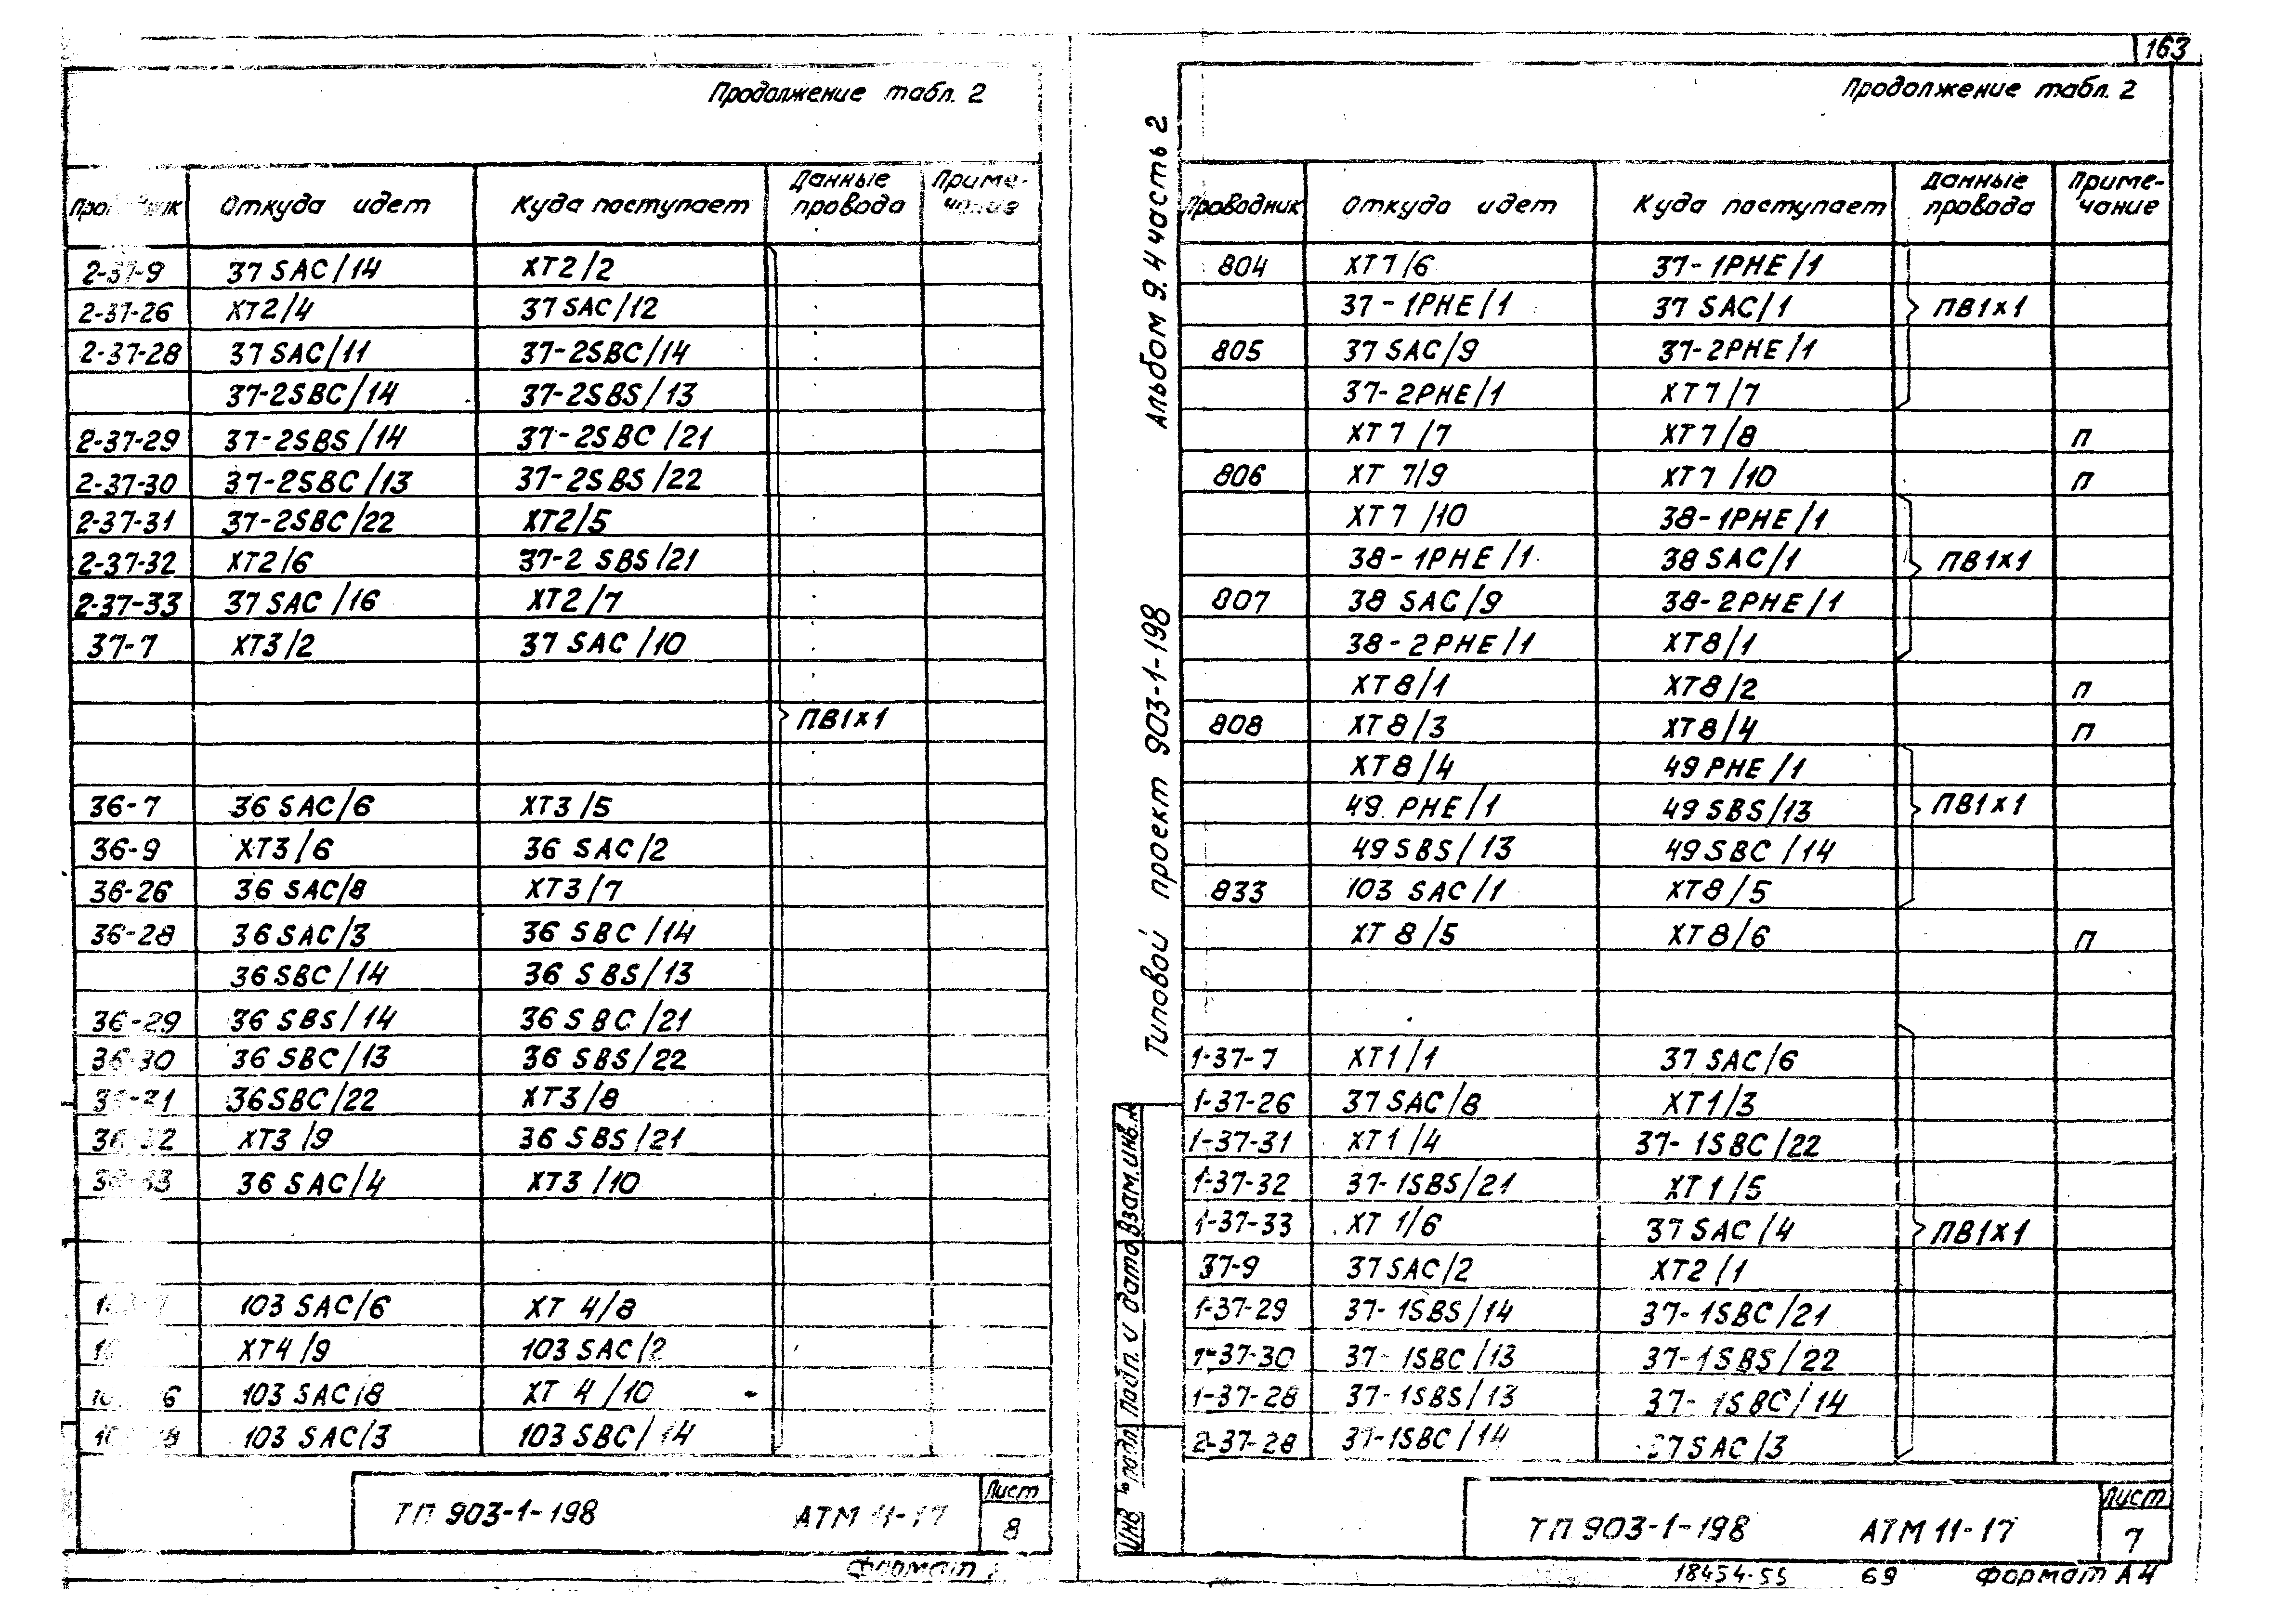 163
Продолжение табл. 2
Откуда идет Куда поступает Данные провода Примечание
2-37-9 37 SAC/14 XT2/2
2-37-26 XT2/4 37 SAC/12
2-37-28 37 SAC/11 37-2SBC/14
37-2SBC/14 37-2SBS/13
2-37-29 37-2SBS/14 37-2SBC/21
2-37-30 37-2SBC/13 37-2SBS/22
2-37-31 37-2SBC/22 XT2/5
2-37-32 XT2/6 37-2 SBS/21
2-37-33 37 SAC/16 XT2/7
37-7 XT3/2 37 SAC/10
ПВ1×1
36-7 36 SAC/6 XT3/5
36-9 XT3/6 36 SAC/2
36-26 36 SAC/8 XT3/7
36-28 36 SAC/3 36 SBC/14
36 SBC/14 36 SBS/13
36-29 36 SBS/14 36 SBC/21
36-30 36 SBC/13 36 SBS/22
36-31 36SBC/22 XT3/8
36-32 XT3/9 36 SBS/21
36-33 36 SAC/4 XT3/10
103 SAC/6 XT 4/8
XT4/9 103 SAC/2
103 SAC/8 XT 4/10
103 SAC/3 103 SBC/14
ТП 903-1-198 АТМ 11-17 Лист
8
Формат
Альбом 9.4 часть 2
Типовой проект 903-1-198
Взам.инв.№
Подп. и дата
Инв № подл
Продолжение табл. 2
Проводник Откуда идет Куда поступает Данные провода Примечание
804 XT7/6 37-1PHE/1
37-1PHE/1 37 SAC/1 ПВ1×1
805 37 SAC/9 37-2PHE/1
37-2PHE/1 XT7/7
XT7/7 XT7/8 П
806 XT 7/9 XT7/10 П
XT7/10 38-1PHE/1
38-1PHE/1 38 SAC/1 ПВ1×1
807 38 SAC/9 38-2PHE/1
38-2PHE/1 XT8/1
XT8/1 XT8/2 П
808 XT8/3 XT8/4 П
XT8/4 49 PHE/1
49 PHE/1 49 SBS/13 ПВ1×1
49 SBS/13 49 SBC/14
833 103 SAC/1 XT8/5
XT 8/5 XT8/6 П
1-37-7 XT1/1 37 SAC/6
1-37-26 37 SAC/8 XT1/3
1-37-31 XT1/4 37-1SBC/22
1-37-32 37-1SBS/21 XT1/5
1-37-33 XT 1/6 37 SAC/4 ПВ1×1
37-9 37 SAC/2 XT2/1
1-37-29 37-1SBS/14 37-1SBC/21
1-37-30 37-1SBC/13 37-1SBS/22
1-37-28 37-1SBS/13 37-1SBC/14
2-37-28 37-1SBC/14 37SAC/3
ТП 903-1-198 АТМ 11-17 Лист
7
18454-55 69 Формат А4